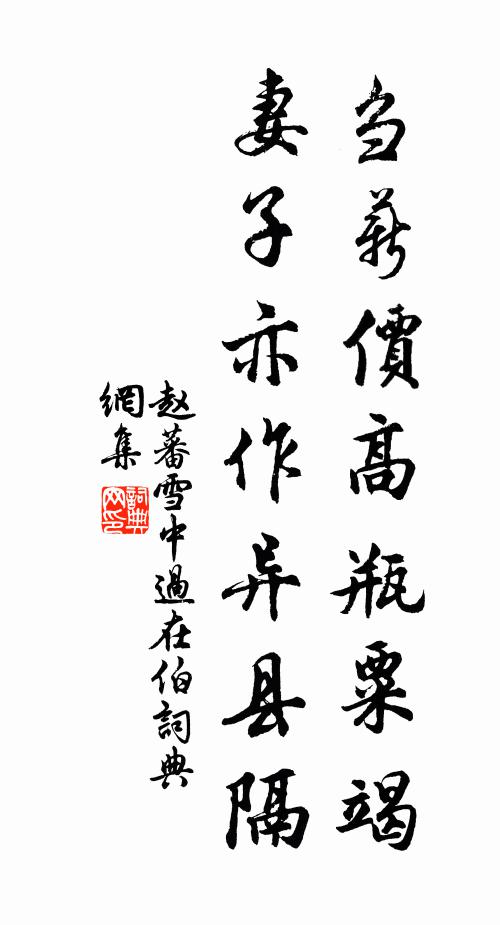 刍薪價高瓶粟竭
妻子亦作异县隔
赵蕃雪中過在伯詞典
網集
詞典
网印